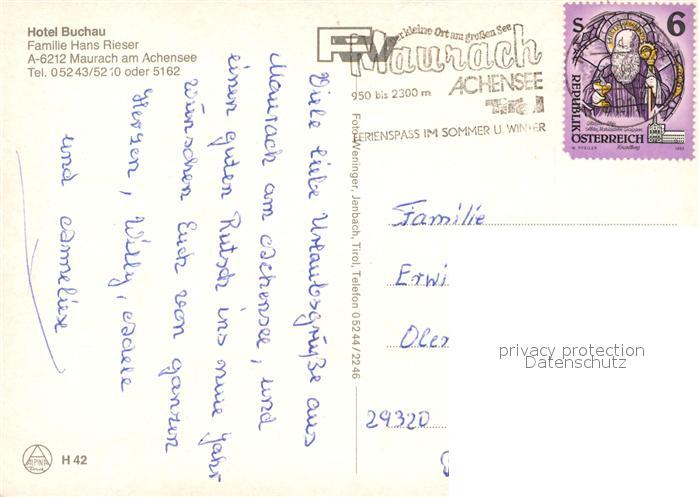 Hotel Buchau
Familie Hans Rieser
A-6212 Maurach am Achensee
Tel. 05243/5210 oder 5162
Viele liebe Urlaubsgrüße aus
Maurach am Achensee, und
einen guten Rutsch ins neue Jahr
wünschen Euch von ganzen
Herzen, Willy, Adele
und Annelise
Foto Weninger, Jenbach, Tirol, Telefon 05244/2246
der kleine Ort am großen See
Maurach
ACHENSEE
950 bis 2300 m
Tirol
FERIENSPASS IM SOMMER U. WINTER
S 6
REPUBLIK
ÖSTERREICH
Familie
Erwi
Oler
29320
privacy protection
Datenschutz
ALPINA
H 42